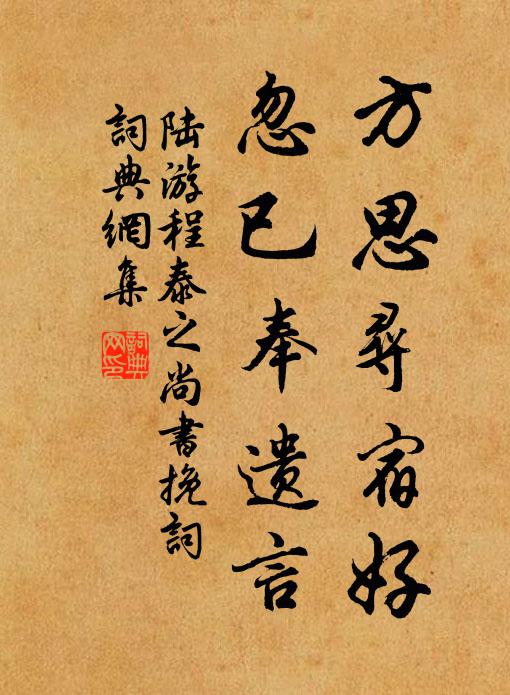 方思尋宿好
忽已奉遺言
陆游程泰之尚書挽詞
詞典網集
詞典
网印